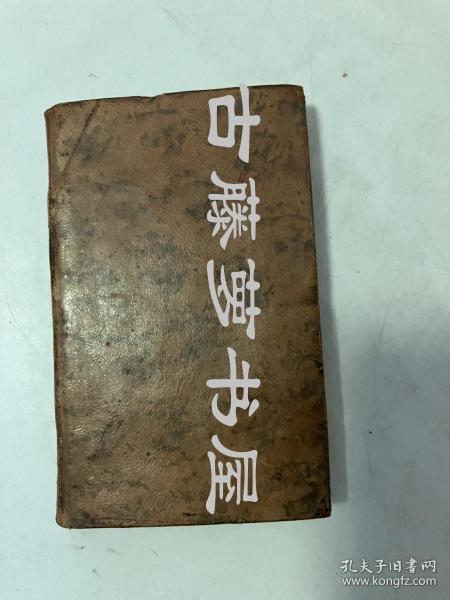 古藤萝书屋
孔夫子旧书网
www.kongfz.com